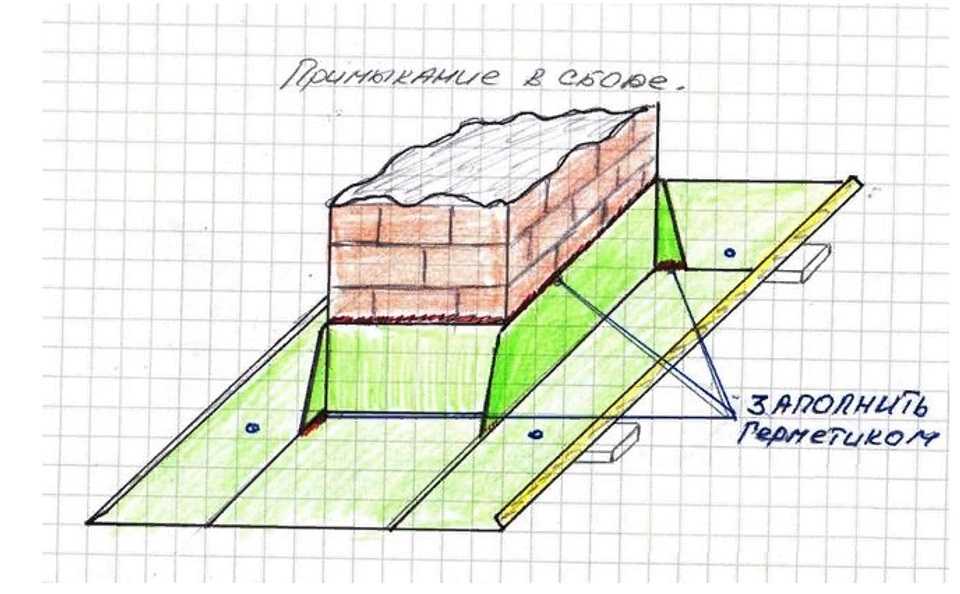 Примыкание в сборе.
ЗАПОЛНИТЬ
Герметиком